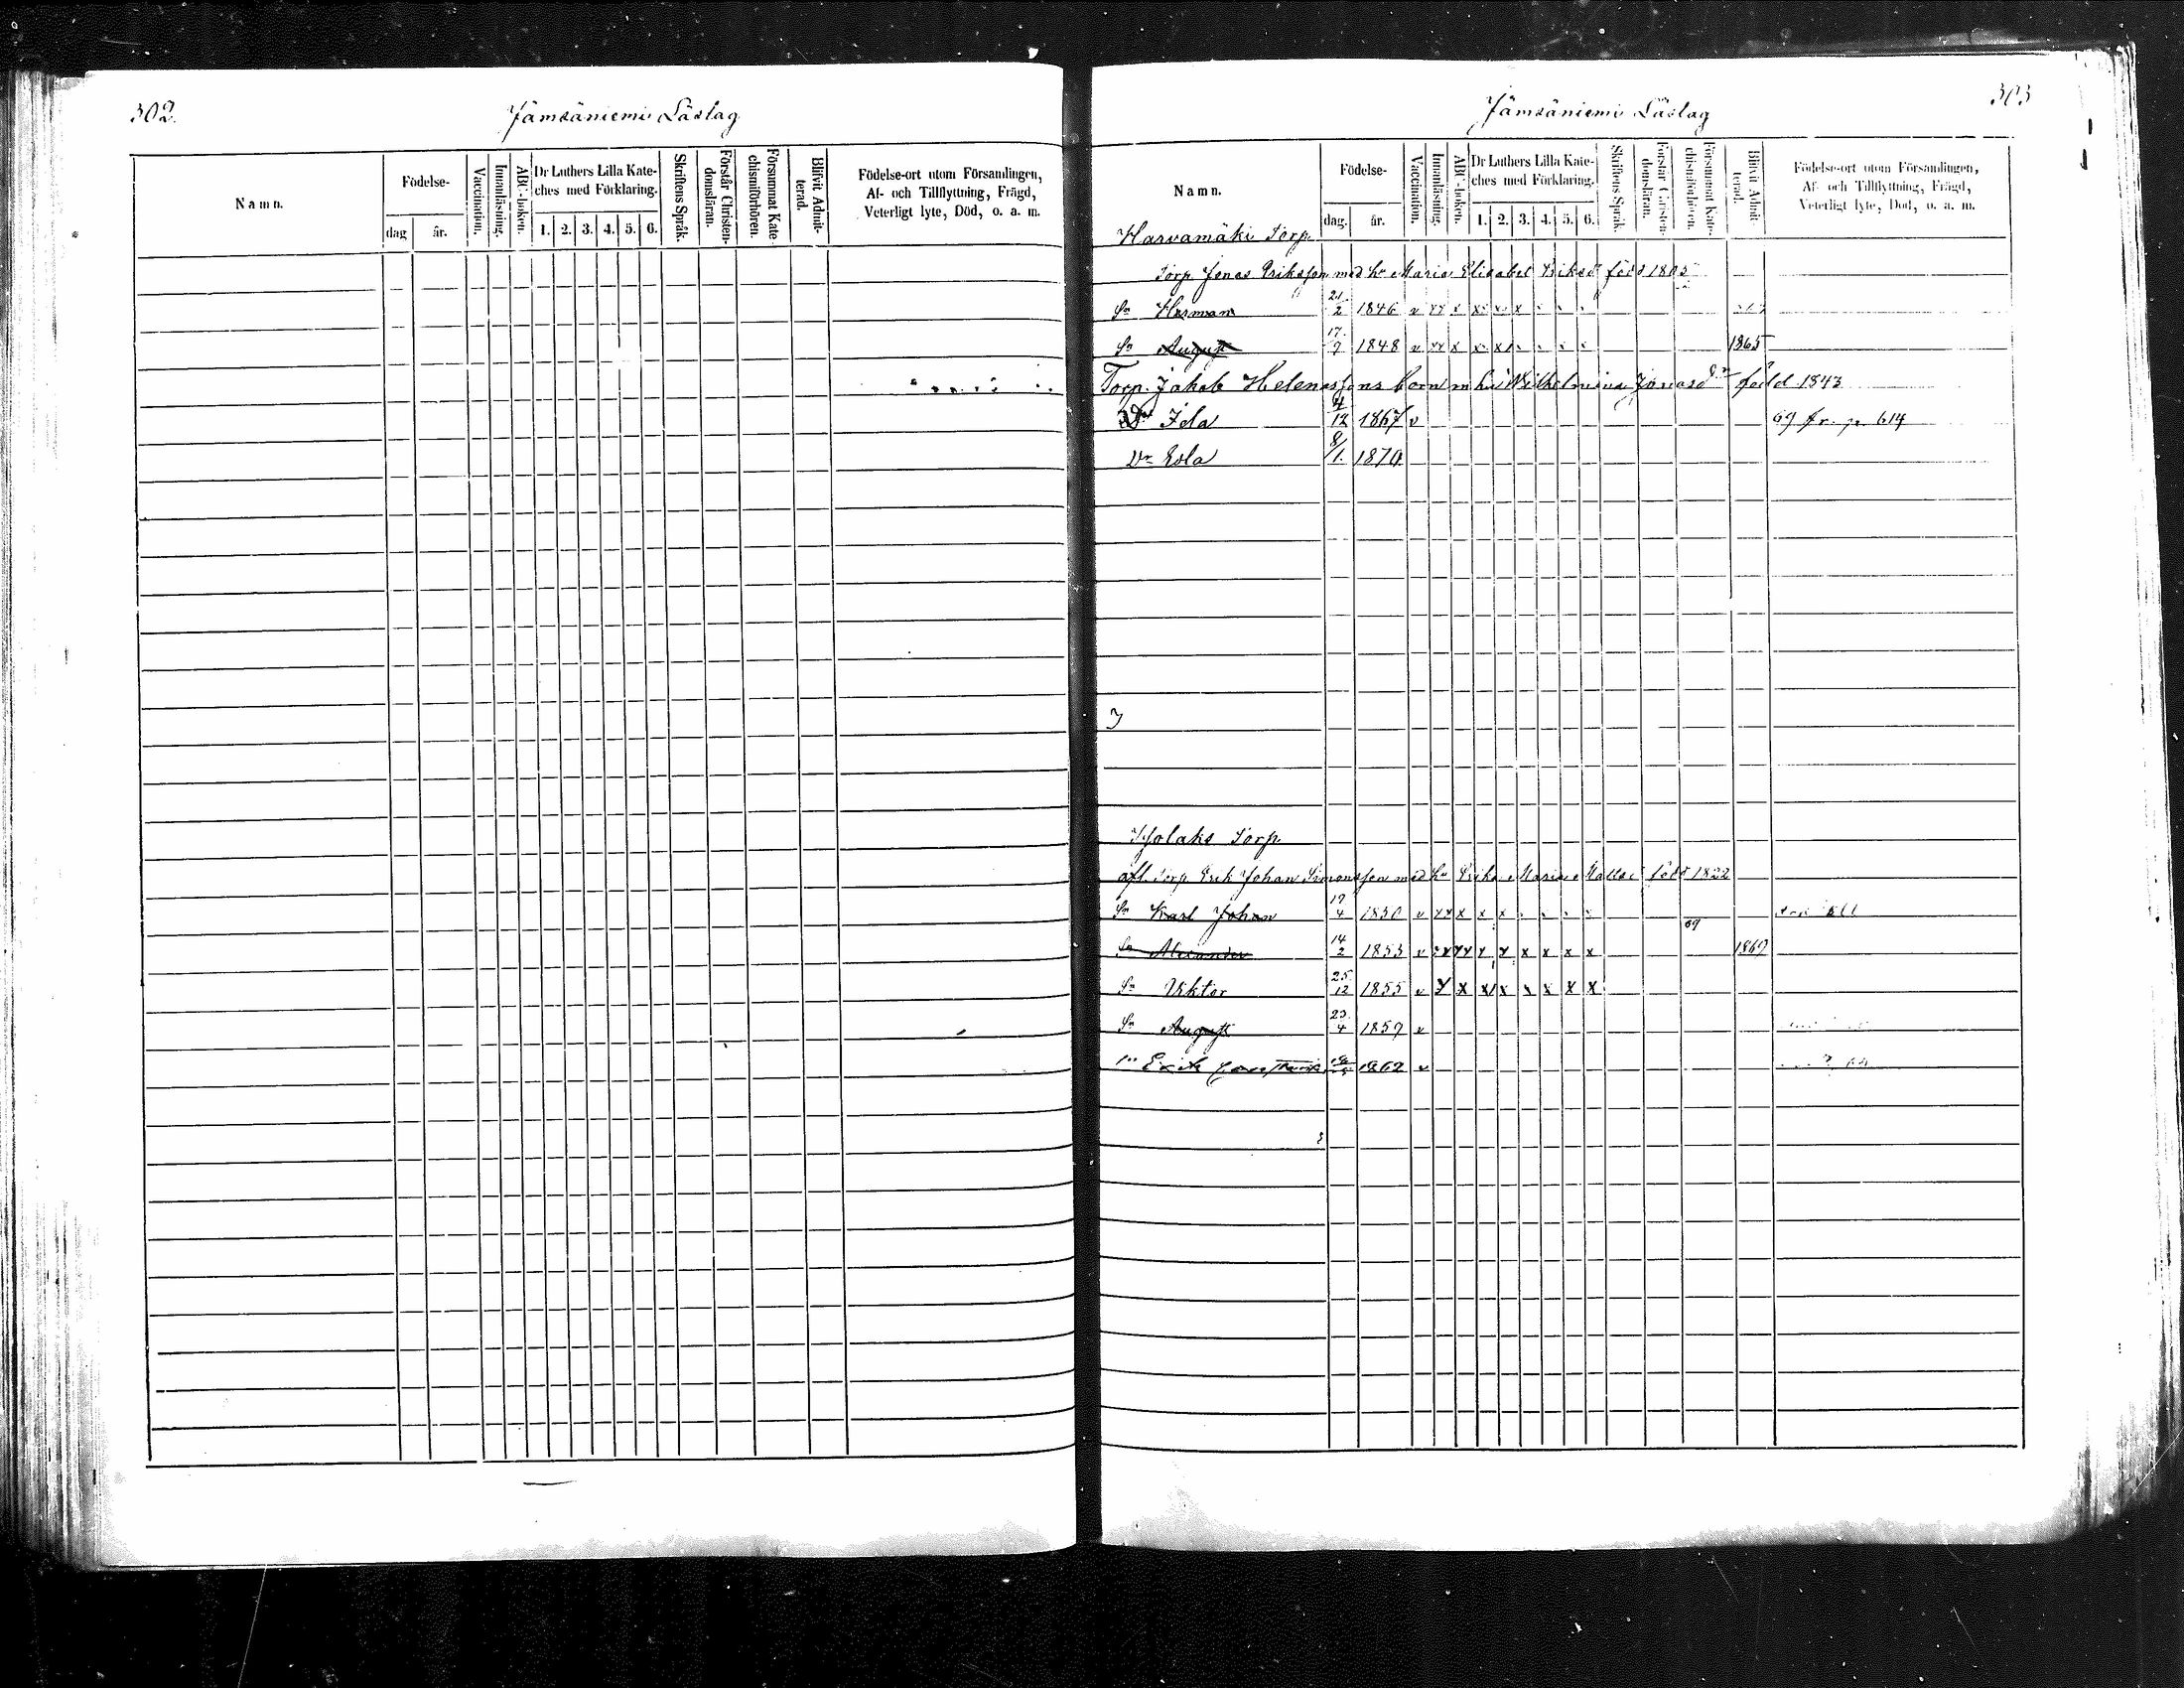 302.
Jämsäniemi Läslag
Namn.
Födelse-
dag
år.
Vaccination.
Innanläsning.
ABC-boken.
Dr Luthers Lilla Kate-
ches med Förklaring.
1. 2. 3. 4. 5. 6.
Skriftens Språk.
Förstår Christen-
domsläran.
Försummat Kate-
chismiförhören.
Blifvit Admit-
terad.
Födelse-ort utom Församlingen,
Af- och Tillflyttning, Frägd,
Veterligt lyte, Död, o. a. m.
303
Jämsäniemi Läslag
Namn.
Födelse-
dag.
år.
Vaccination.
Innanläsning.
ABC-boken.
Dr Luthers Lilla Kate-
ches med Förklaring.
1. 2. 3. 4. 5. 6.
Skriftens Språk.
Förstår Christen-
domsläran.
Försummat Kate-
chismiförhören.
Blifvit Admit-
terad.
Födelse-ort utom Församlingen,
Af- och Tillflyttning, Frägd,
Veterligt lyte, Död, o. a. m.
Harvamäki Torp
Torp. Jonas Eriksson med hu Maria Elisabet född 1805
Sn Herman 21/2 1846 v xx x x x x
Sn August 17/7 1848 v xx x x x 1865
Torp. Jakob Helenassons barn m hu Wilhelmina Jonasdr född 1843
Dr Ida 4/12 1867 v 69 fr. p. 614
Dr Eola 8/1. 1870
Torp
aft. Torp Erik Johan Simonsson med hu Maria född 1822
Sn Karl Johan 19/4 1850 v xx x x x
69
Sn Alexander 14/2 1853 v x x x x x x 1869
Sn Viktor 25/12 1855 v x x x x x x x x
Sn August 23/4 1859 v
Sn Erik 1862 v